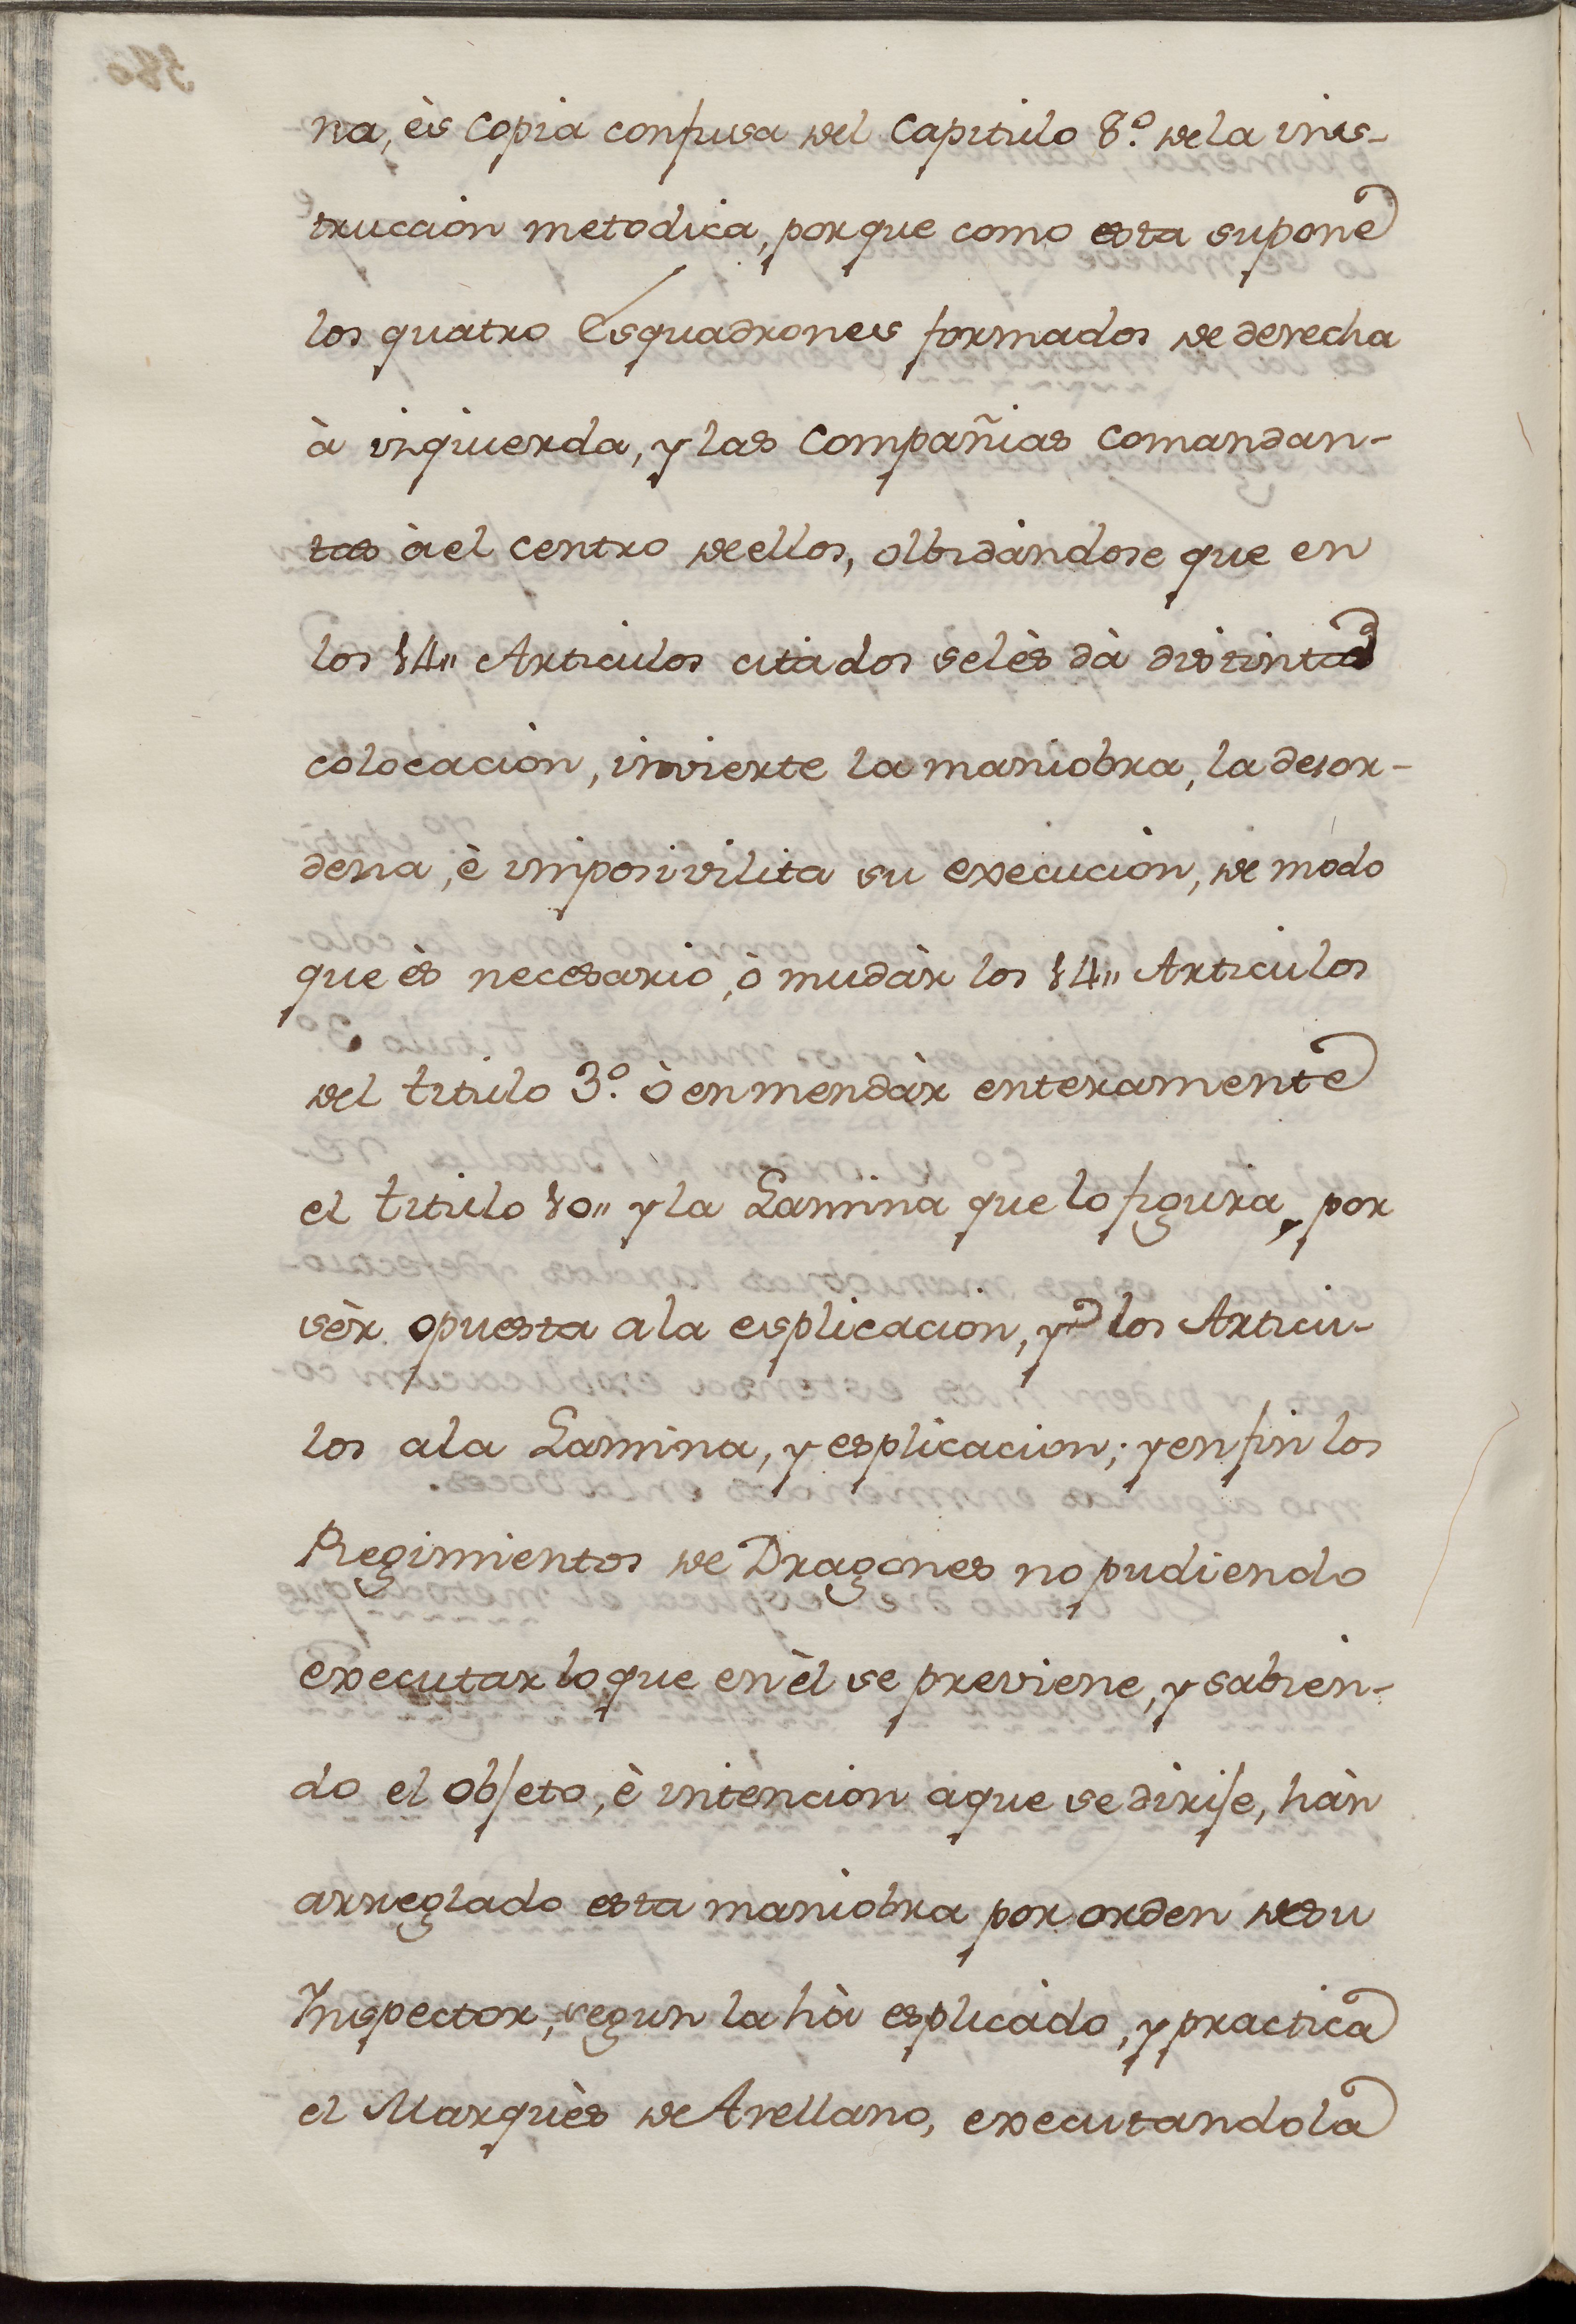 na, ès copia confusa del capitulo 8º. dela ins-
truccion metodica, porque como esta supone
los quatro Esquadrones formados de derecha
à izquierda, y las Compañias comandan-
tas àel centro deellos, olbidandose que en
los 14,, Articulos citados selès dà distinta
colocacion, invierte la maniobra, la desor-
dena, è imposivilita su execucion, de modo
que ès necesario, ò mudàr los 14,, Articulos
del titulo 3º. ò enmendàr enteramente
el titulo 10,, y la Lamina que lo figura, por
sèr opuesta ala esplicacion, y los Articu-
los ala Lamina, y esplicacion; y enfin los
Regimientos de Dragones no pudiendo
executar loque en èl se previene, y sabien-
do el objeto, è intencion aque se dirije, hàn
arreglado esta maniobra por orden desu
Inspector, segun la hà esplicado, y practica
el Marquès de Arellano, executandola